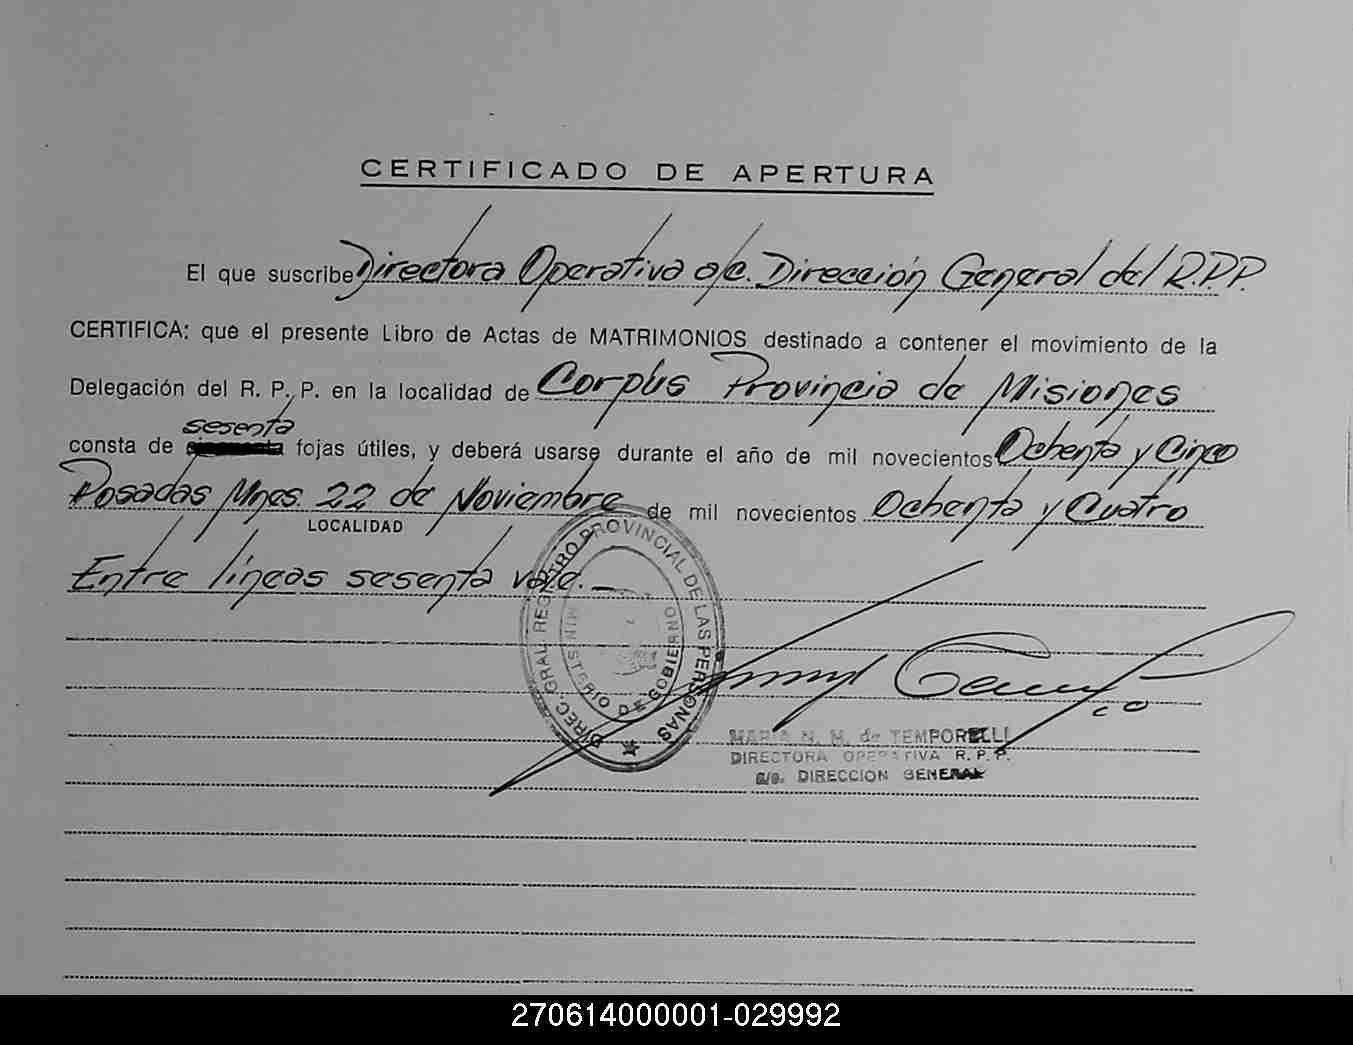 CERTIFICADO DE APERTURA
El que suscribe Directora Operativa a/c. Dirección General del R.P.P.
CERTIFICA: que el presente Libro de Actas de MATRIMONIOS destinado a contener el movimiento de la
Delegación del R. P. P. en la localidad de Corpus Provincia de Misiones
sesenta
consta de fojas útiles, y deberá usarse durante el año de mil novecientos Ochenta y Cinco
Posadas Mnes. 22 de Noviembre de mil novecientos Ochenta y Cuatro
LOCALIDAD
Entre líneas sesenta vale.-
DIREC. GRAL. REGISTRO PROVINCIAL DE LAS PERSONAS
MINISTERIO DE GOBIERNO
MARIA N. M. de TEMPORELLI
DIRECTORA OPERATIVA R. P. P.
a/c. DIRECCION GENERAL
270614000001-029992